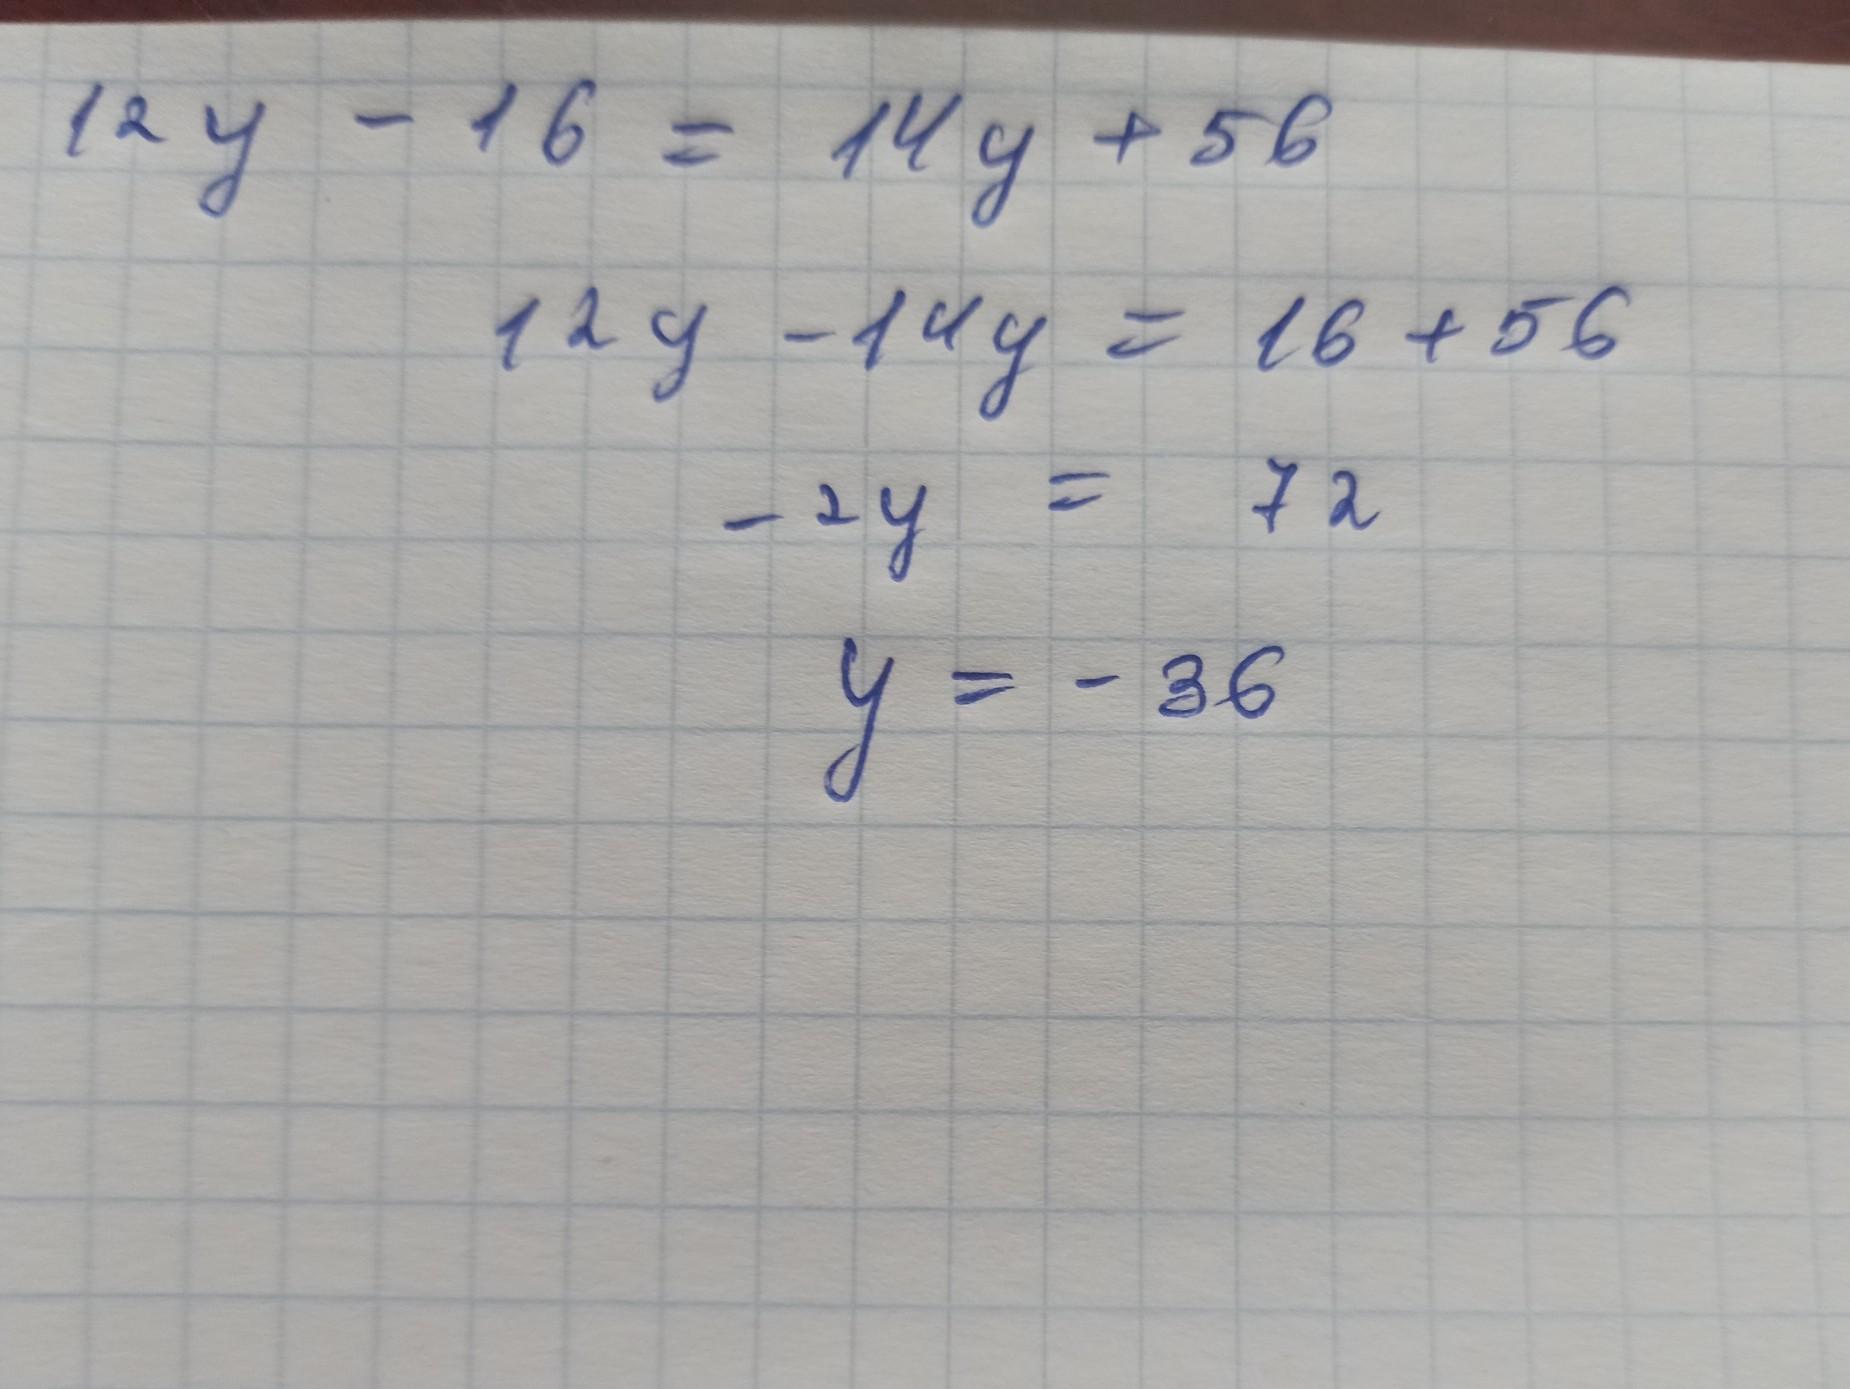 12y - 16 = 14y + 56
12y - 14y = 16 + 56
-2y = 72
y = - 36